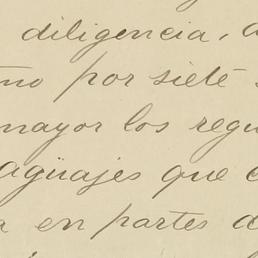 diligencia,
por siete
mayor los
agüajes que
en partes